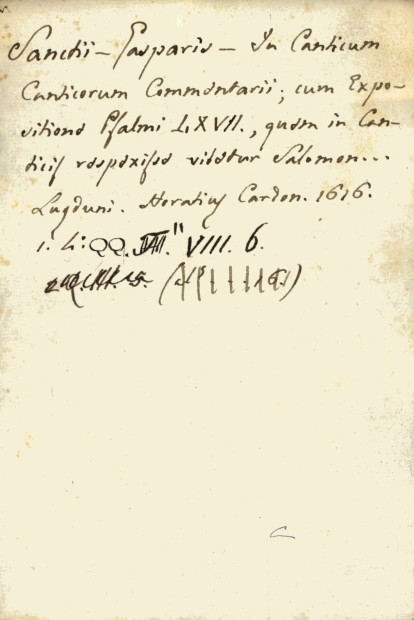 Sanctii – Gasparis – In Canticum
Canticorum Commentarii; cum Expo-
sitione Psalmi LXVII., quem in Can-
ticis respexisse videtur Salomon...
Lugduni. Horatius Cardon. 1616.
1. L: QQ. VIII. 6.